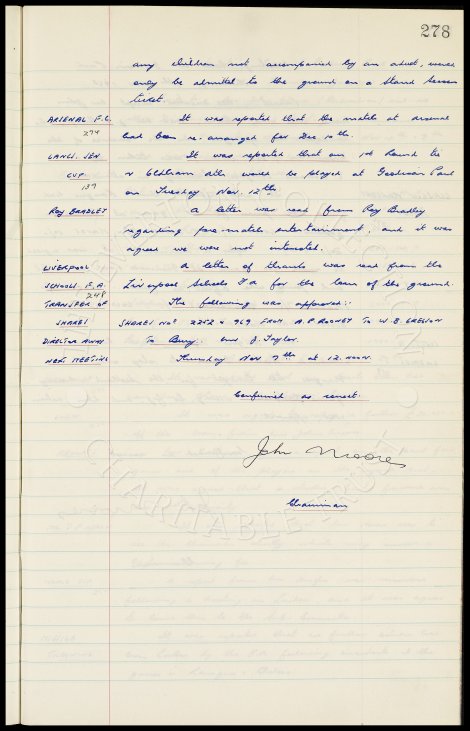 278
any children not accompanied by an adult, would
only be admitted to the ground on a Stand Season
ticket
ARSENAL F.C. It was reported that the match at Arsenal
274 had been re-arranged for Dec. 10th.
LANCS. SEN It was reported that our 1st round tie
CUP v Oldham Ath. would be played at Goodison Park
137 on Tuesday Nov. 12th.
ROY BRADLEY A letter was read from Roy Bradley
regarding pre-match entertainment, and it was
agreed we were not interested.
LIVERPOOL A letter of thanks was read from the
SCHOOLS F.A. Liverpool Schools F.A for the loan of the ground.
248
TRANSFER OF The following was approved:-
SHARES SHARES Nos 2252 & 969 FROM A.P. ROONEY TO W.B.
DIRECTOR AWAY To Bury. Mr J. Taylor.
NEXT MEETING Thursday Nov 7th at 12 noon.
Confirmed as correct.
John Moores
Chairman
CHARITABLE TRUST